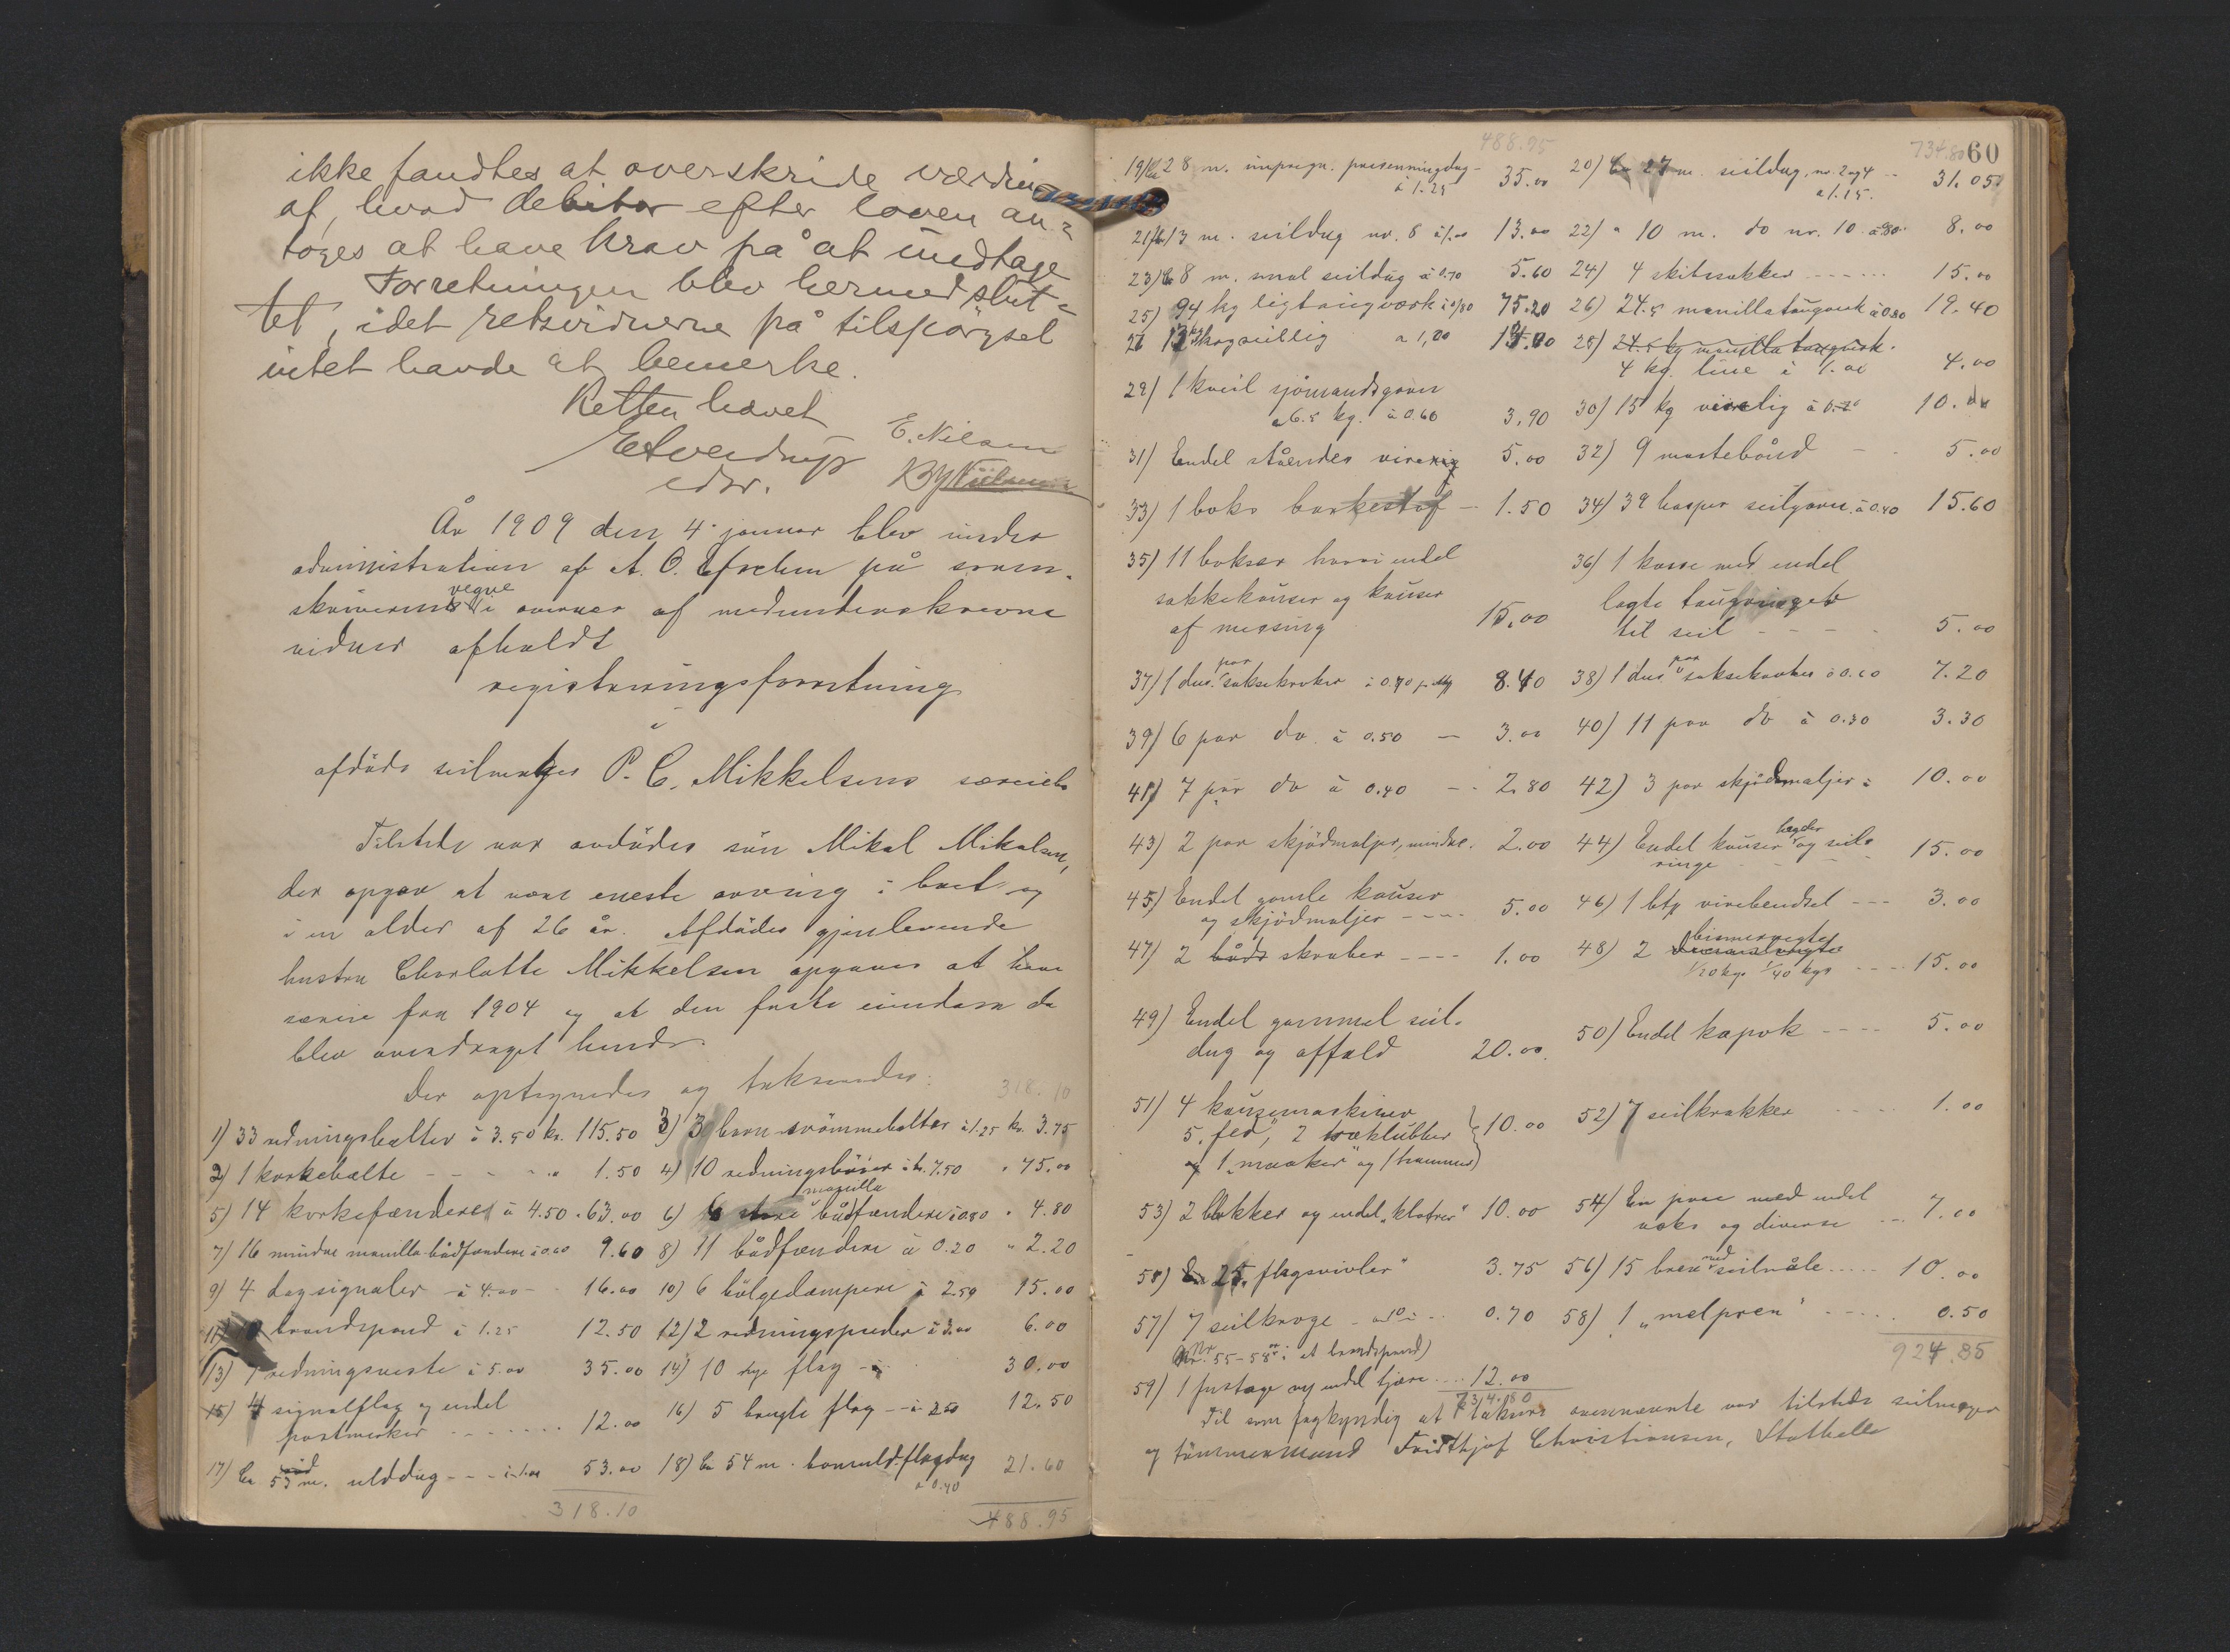 ikke fandtes at overskride værdien
af, hvad debitor efter loven an-
toges at have krav på at undtage
Forretningen blev hermed slut-
tet, idet retsvidnerne på tilspørgsel
intet havde at bemerke.
Retten hævet
E. Nilsen
År 1909 den 4. januar blev under
administration af A. O. på soren-
skriverens vegne i overvær af medunderskrevne
vidner afholdt
registreringsforretning
i
afdöde seilmager P. C. Mikkelsens særeiebo
Tilstede var avdödes sön Mikal Mikalsen,
der opgav at være eneste arving i boet og
i en alder af 26 år. Afdödes gjenlevende
hustru Charlotte Mikkelsen opgaves at have
særeie fra 1904 og at den faste eiendom da
blev overdraget hende.
Der optegnedes og takseredes:
318.10
1) 33 redningsbelter à 3.50 kr. 115.50 3) 3 barnesvömmebelter à 1.25 kr. 3.75
2) 1 korkebælte - - - - " 1.50 4) 10 redningsböier à kr. 7.50 " 75.00
5) 14 korkefændere à 4.50 " 63.00 6) 6 store manilla bådfændere à 0.80 " 4.80
7) 16 mindre manilla bådfændere à 0.60 9.60 8) 11 bådfændere à 0.20 " 2.20
9) 4 dagsignaler - à 4.00 - 16.00 10) 6 bölgedæmpere à 2.50 15.00
11) brandspand à 1.25 12.50 12) 2 redningspuder à 3.00 6.00
13) 7 redningsveste à 5.00 35.00 14) 10 nye flag - 30.00
15) 4 signalflag og endel
postmerker - - - - 12.00 16) 5 brugte flag - à 2.50 12.50
17) Ca 53 m. rød ulddug - - - à 1.00 53.00 18) Ca 54 m. bomuldsflagdug
à 0.40 21.60
318.10 488.95
488.95 734.80 60
19) Ca 28 m. imprægn. presenningdug -
à 1.25 35.00 20) Ca 27 m. seildug, nr. 2 og 4 --
à 1.15. 31.05
21) Ca 13 m. seildug nr. 8 à 1.00 13.00 22) " 10 m. do nr. 10 à 80 8.00
23) Ca 8 m. smal seildug à 0.70 5.60 24) 4 skibssækker - - - - 15.00
25) 94 kg ligtaugværk à 0/80 75.20 26) 24.5 manillataugverk à 0.80 19.40
28) 24.5 kg manilla taugverk.
4 kg. line à 1.00 4.00
29) 1 kveil sjömandsgarn
6.5 kg. à 0.60 3.90 30) 15 kg virelig 10.00
31) Endel stående virerig 5.00 32) 9 mastebånd - - 5.00
33) 1 boks barkestof - 1.50 34) 39 hasper seilgarn. à 0.40 15.60
35) 11 bokser hvori endel
sækkekouser og kouser
af messing 15.00
36) 1 kasse med endel
lagte taugringer
til seil - - - 5.00
37) 1 dus. par saksekroker à 0.70 8.40 38) 1 dus. par saksekroker à 0.60 7.20
39) 6 par do. à 0.50 - 3.00 40) 11 par do à 0.30 3.30
41) 7 par do à 0.40 - - 2.80 42) 3 par skjödmaljer à 10.00
43) 2 par skjödmaljer, mindre. 2.00 44) Endel kouser lægder og seil-
ringe - - - 15.00
45) Endel gamle kouser
og skjödmaljer - - - - 5.00 46) 1 btg virebendsel - - - 3.00
47) 2 båds skruber - - - - 1.00 48) 2 bismervegte
1/20 kgs 1/40 kgs - - - - 15.00
49) Endel gammel seil-
dug og affald 20.00 50) Endel kapok - - - - 5.00
51) 4 kousemaskiner
5 "fed", 2 træklubber
og 1 "mærker" og 1 hammer) 10.00 52) 7 seilkrakker - - - - 1.00
53) 2 blokker og endel "klotrer" 10.00 54) En pose med endel
voks og diverse - - 7.00
55) 25 "flagsvivler" 3.75 56) 15 breve med seilnåle - - - - 10.00
57) 7 seilkroge - à 10 - - 0.70 58) 1 "melpren" - - - 0.50
(Nr. 55-58 i et brandspand) 924.85
59) 1 fustage og endel tjære - - - 12.00
734.80
Til som fagkyndig at taksere ovennævnte var tilstede seilmager
og tömmermand Fridthjof Christiansen, Stathelle